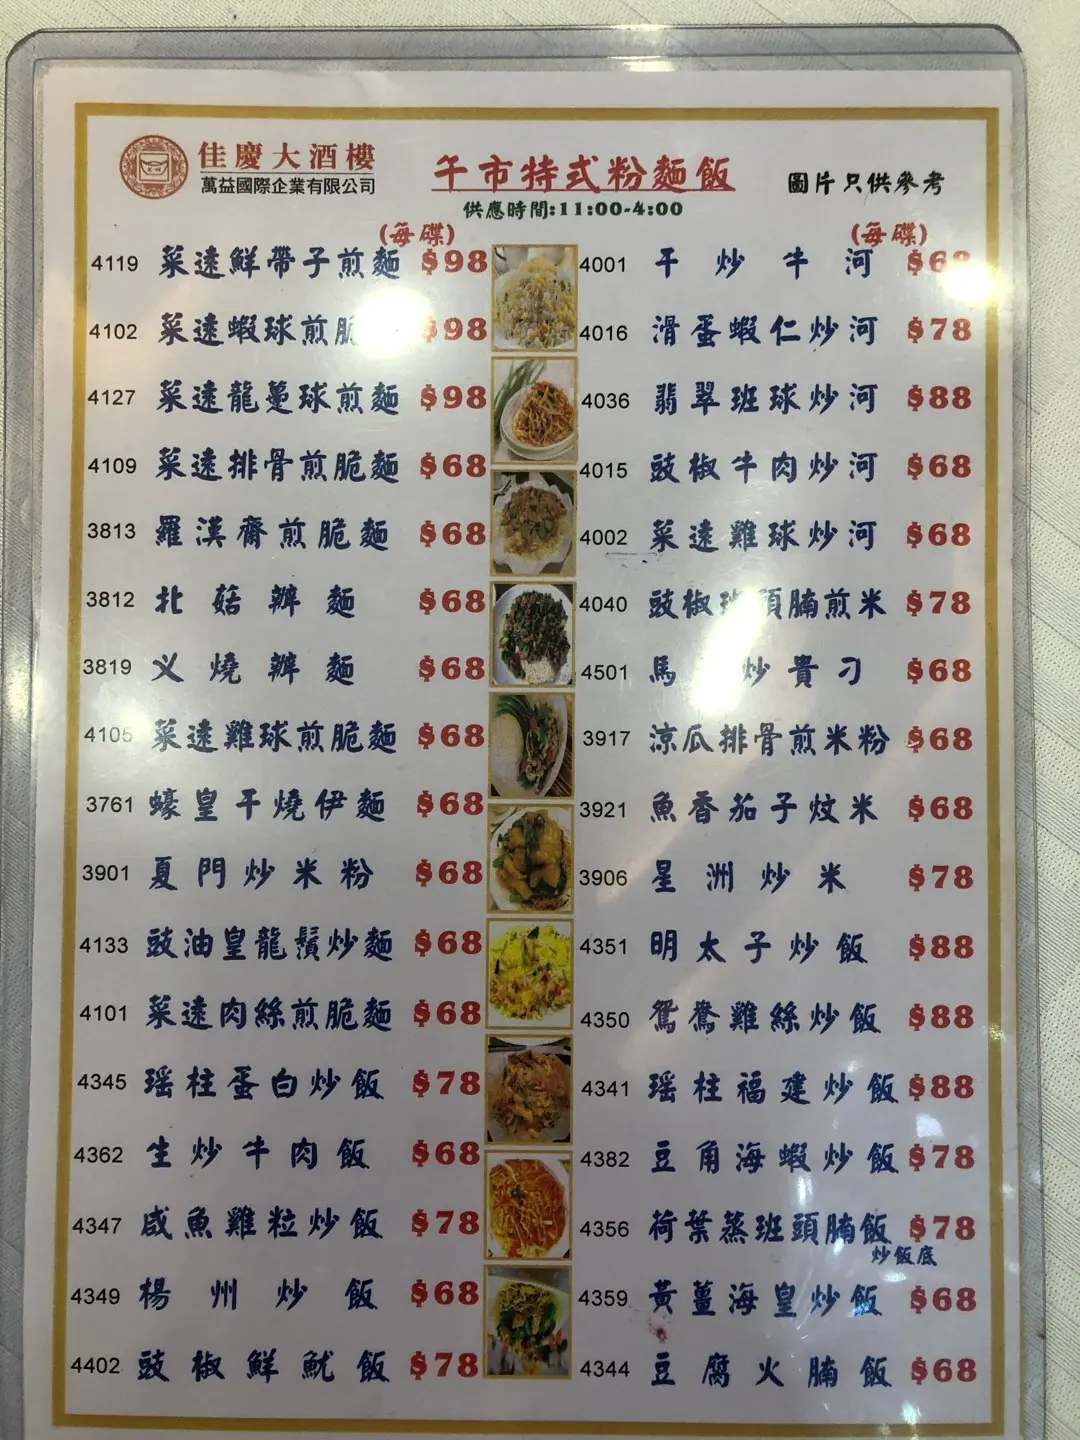 佳慶大酒樓
萬益國際企業有限公司
午市特式粉麵飯
供應時間:11:00-4:00
圖片只供參考
(每碟)
4119 菜遠鮮帶子煎麵 $98
4102 菜遠蝦球煎脆 $98
4127 菜遠龍躉球煎麵 $98
4109 菜遠排骨煎脆麵 $68
3813 羅漢齋煎脆麵 $68
3812 北菇辦麵 $68
3819 义燒辦麵 $68
4105 菜遠雞球煎脆麵 $68
3761 蠔皇干燒伊麵 $68
3901 夏門炒米粉 $68
4133 豉油皇龍鬚炒麵 $68
4101 菜遠肉絲煎脆麵 $68
4345 瑶柱蛋白炒飯 $78
4362 生炒牛肉飯 $68
4347 咸魚雞粒炒飯 $78
4349 楊州炒飯 $68
4402 豉椒鮮魷飯 $78
(每碟)
4001 干炒牛河 $68
4016 滑蛋蝦仁炒河 $78
4036 翡翠班球炒河 $88
4015 豉椒牛肉炒河 $68
4002 菜遠雞球炒河 $68
4040 豉椒班頭腩煎米 $78
4501 馬 炒貴刁 $68
3917 涼瓜排骨煎米粉 $68
3921 魚香茄子炆米 $68
3906 星洲炒米 $78
4351 明太子炒飯 $88
4350 鴛鴦雞絲炒飯 $88
4341 瑶柱福建炒飯 $88
4382 豆角海蝦炒飯 $78
4356 荷葉蒸班頭腩飯 $78
炒飯底
4359 黃薑海皇炒飯 $68
4344 豆腐火腩飯 $68